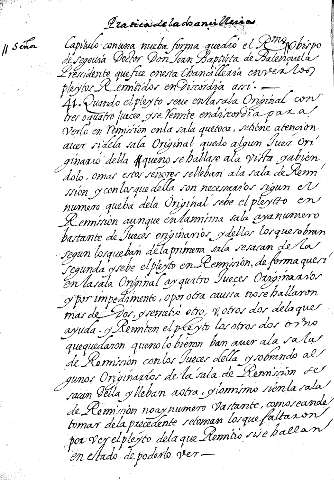 Practica de la chancilleria
// Señor
Capitulo con una nueba forma que dio el Rmo Obispo
de segovia Doctor Don Juan Baptista de Balençuela
Presidente que fue en esta Chancilleria en ver los
pleytos Remitidos en discordia assi. —
41. Quando el pleyto se ve en la sala Original con
tres o quatro jueces, y se Remite en discordia para
verlo en Remision en la sala que toca, se tiene atencion
a ver si de la sala Original quedo algun Juez Ori
ginario della que no se hallase a la vista, y abien
dolo, o mas estos señores se lleban a la sala de Remi
ssion, y con los que della son necesarios segun el
numero que ba de la Original se be el pleytto en
Remission aunque en la misma sala aya numero
bastante de Jueces originarios, y dellos los que sobran
segun los que ban de la primera sala se sacan de la
segunda y se be el pleyto en Remission, de forma que si
en la sala Original ay quatro Jueces Originarios
y por impedimento, o por otra caussa no se hallaron
mas de Dos, y se traxo otro, u otros dos de la que
ayuda, y Remiten el pleyto los otros dos o uno
que quedaron que no lo bieron ban a ver a la sala
de Remission con los Jueces della y sobrando al
gunos Originarios de la sala de Remission se
sacan della y lleban a otra, y lo mismo si en la sala
de Remission no ay numero Vastante, como se ande
tomar de la precedente se toman los que faltaron
por ver el pleyto de la que Remitio si se hallan
en estado de poderlo ver —